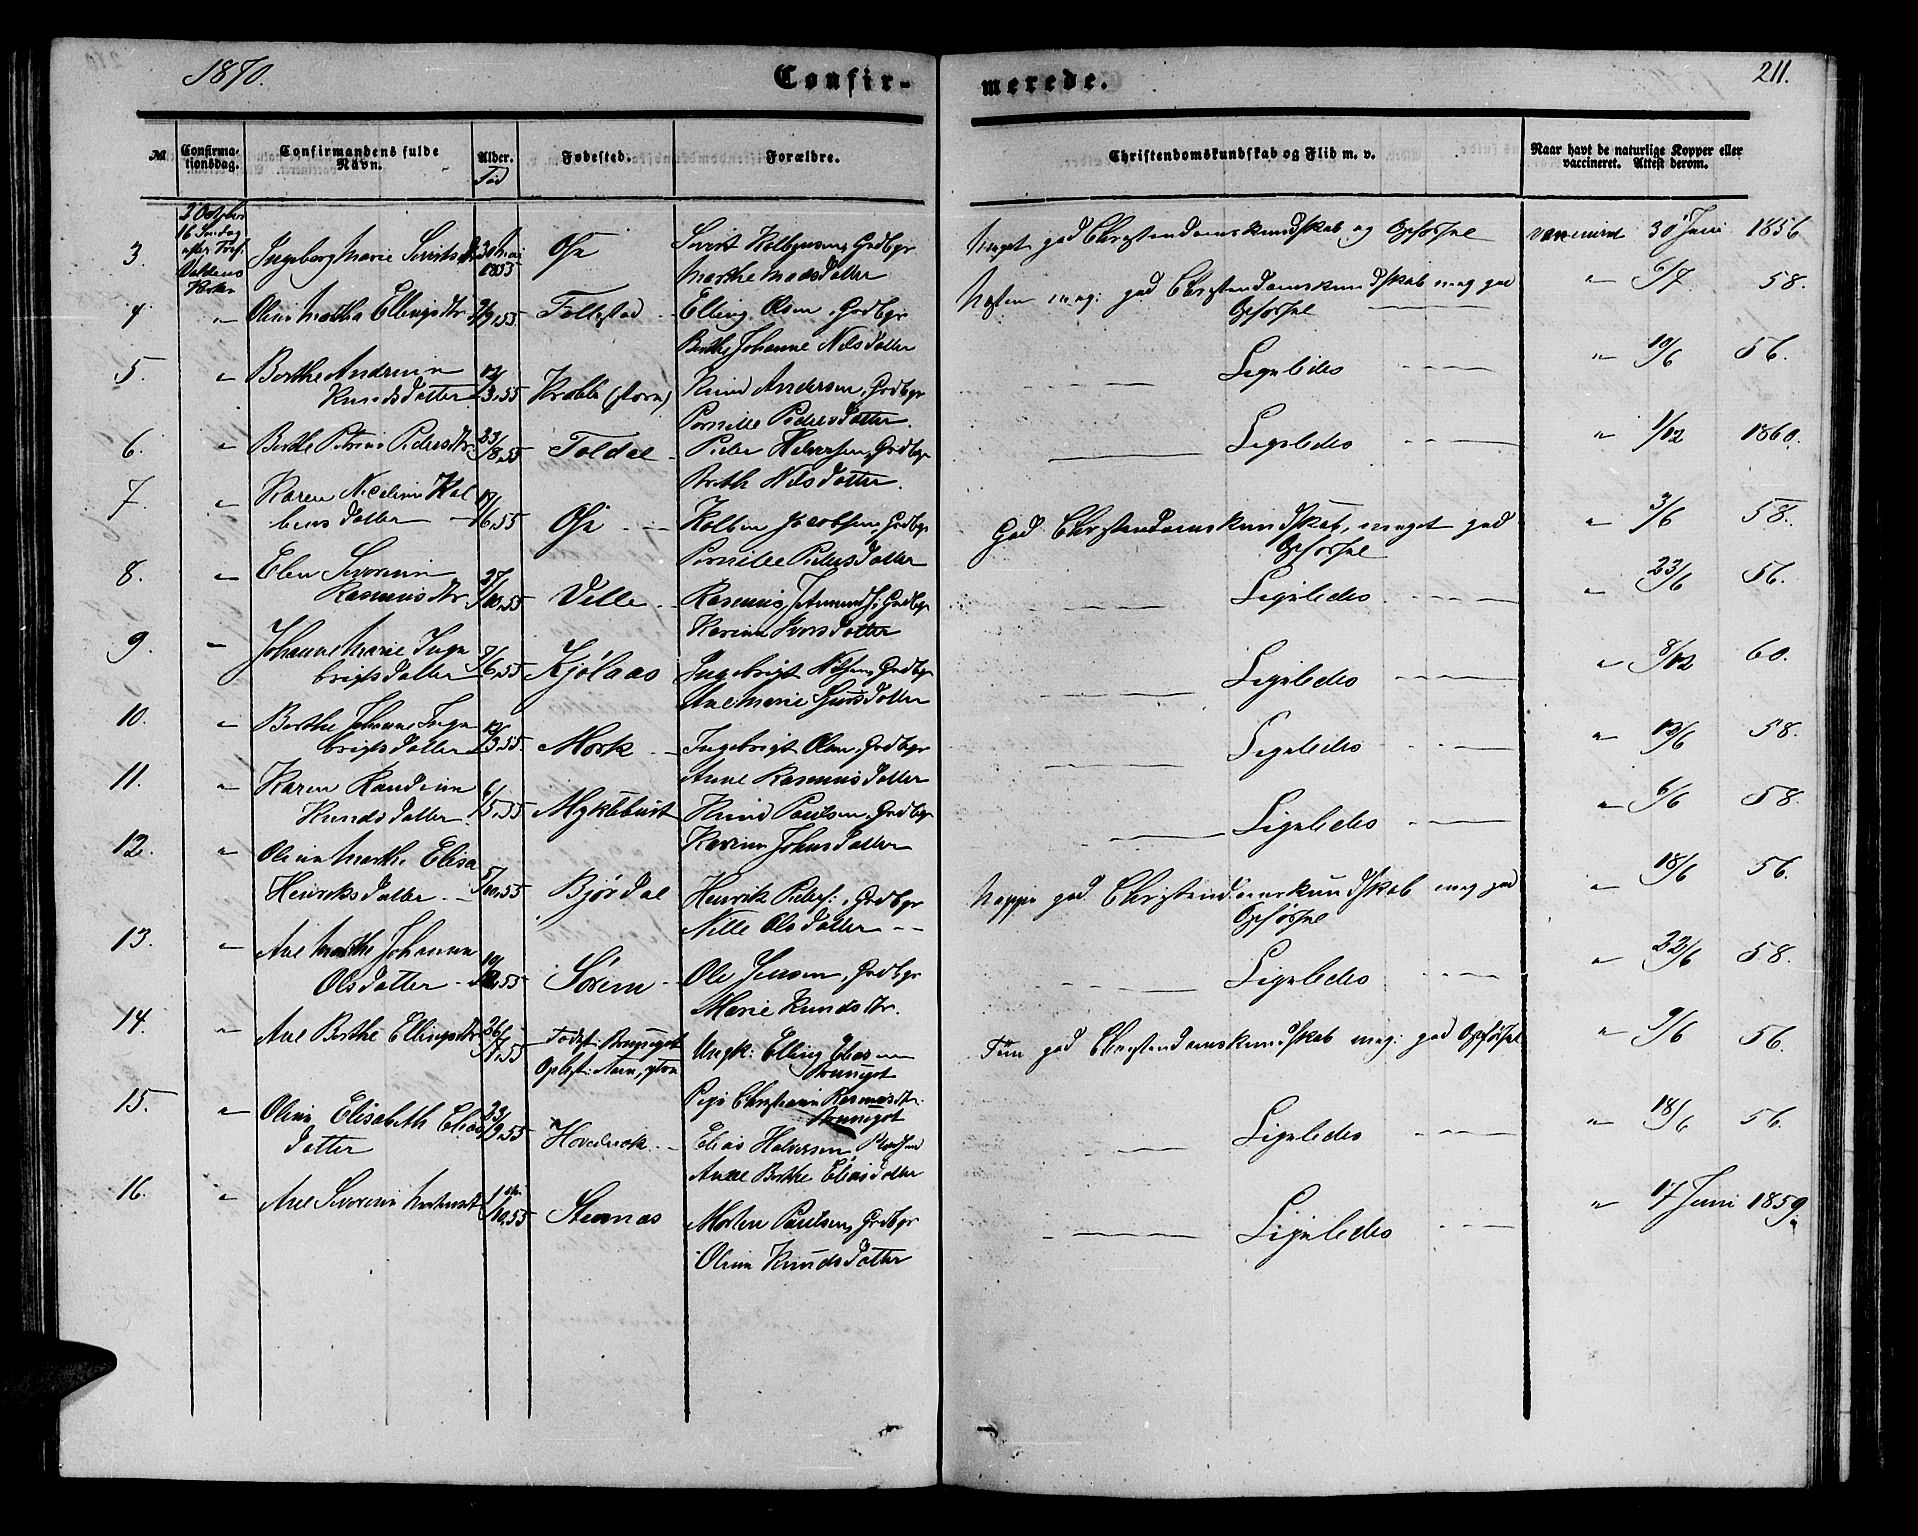 1870.
Confir-
merede.
211.
№
Confirmationsdag.
Confirmandens fulde Navn.
Alder. Fød
Fødested.
Forældre.
Christendomskundskab og Flid m. v.
Naar havt de naturlige Kopper eller vaccineret. Attest derom.
3. 2 October 16 Søndag efter Tref. Voldens Kirke
Ingeborg Marie Sivertsdtr 30 Mai 1855 Ose Sivert Kolbensen, Grdbgr
Marthe Madsdatter
Meget god Christendomskundskab og Opførsel vaccineret 30 Juni 1856
4. " Oline Martha Ellingsdtr 3/9.55 Follestad Elling Olsen, Grdbgr
Berthe Johanne Nilsdatter
Næsten meg: god Christendomskundskab meg god " 6/7 58.
Opførsel
5. " Berthe Andrea
Knudsdatter 12/3.55 Knud Andersen, Grdbgr
Pernille Pedersdatter.
Ligeledes " 10/6 56.
6. " Berthe Petrine Pedersdtr 23/8.55 Foldal Peder Halvorsen, Grdbgr
Berthe Nilsdatter.
Ligeledes " 1/12 1860.
7. " Karen Nicoline Kol
bensdatter /6.55 Ose Kolben Jacobsen, Grdbgr
Pernille Pedersdatter
God Christendomskundskab, meget god " 3/6 58.
Opførsel
8. " Elen Severine
Rasmusdtr 27/10.55 Velle Rasmus Amunds:, Grdbgr
Karine Iversdatter
Ligeledes " 23/6 56.
9. " Johanne Marie Inge
brigtsdatter /6.55 Kjølaas Ingebrigt Nilsen, Grdbgr
Ane Marie Sjursdatter
Ligeledes " 8/12 60.
10. " Berthe Johanne Inge
brigtsdatter 12/3.55. Mork Ingebrigt Olsen, Grdbgr
Anne Rasmusdatter
Ligeledes " 12/6 58.
11. " Karen Randine
Knudsdatter 6/5.55 Myklebust Knud Paulsen, Grdbgr
Karine Johnsdatter
Ligeledes " 6/6 58.
12. " Oline Marthe Elisa
Henriksdatter 5/10.55 Bjørdal Henrik Peders:, Grdbgr
Nille Olsdatter
Neppe god Christendomskundskab meg god " 18/6 56.
Opførsel
13. " Ane Marthe Johanne
Olsdatter 10/12.55 Sørem Ole Jensen, Grdbgr
Marie Knudsdtr.
Ligeledes " 22/6 58.
14. " Ane Berthe Ellingsdtr 26/7.55 Fødest: Bruneget Ungk: Elling Eliassen
Bruneget
Pige Christiane Rasmusdtr:
Bruneget
god Christendomskundskab meg: god Opførsel " 9/6 56.
15. " Oline Elisabeth Elias
datter 23/9.55 Elias Halvorsen,
Anne Berthe Eliasdatter
Ligeledes " 18/6 56.
16. " Ane Severine Mortensdtr 1/10.55 Steinnes Morten Paulsen, Grdbgr
Oline Knudsdatter
Ligeledes " 17 Juni 1859.